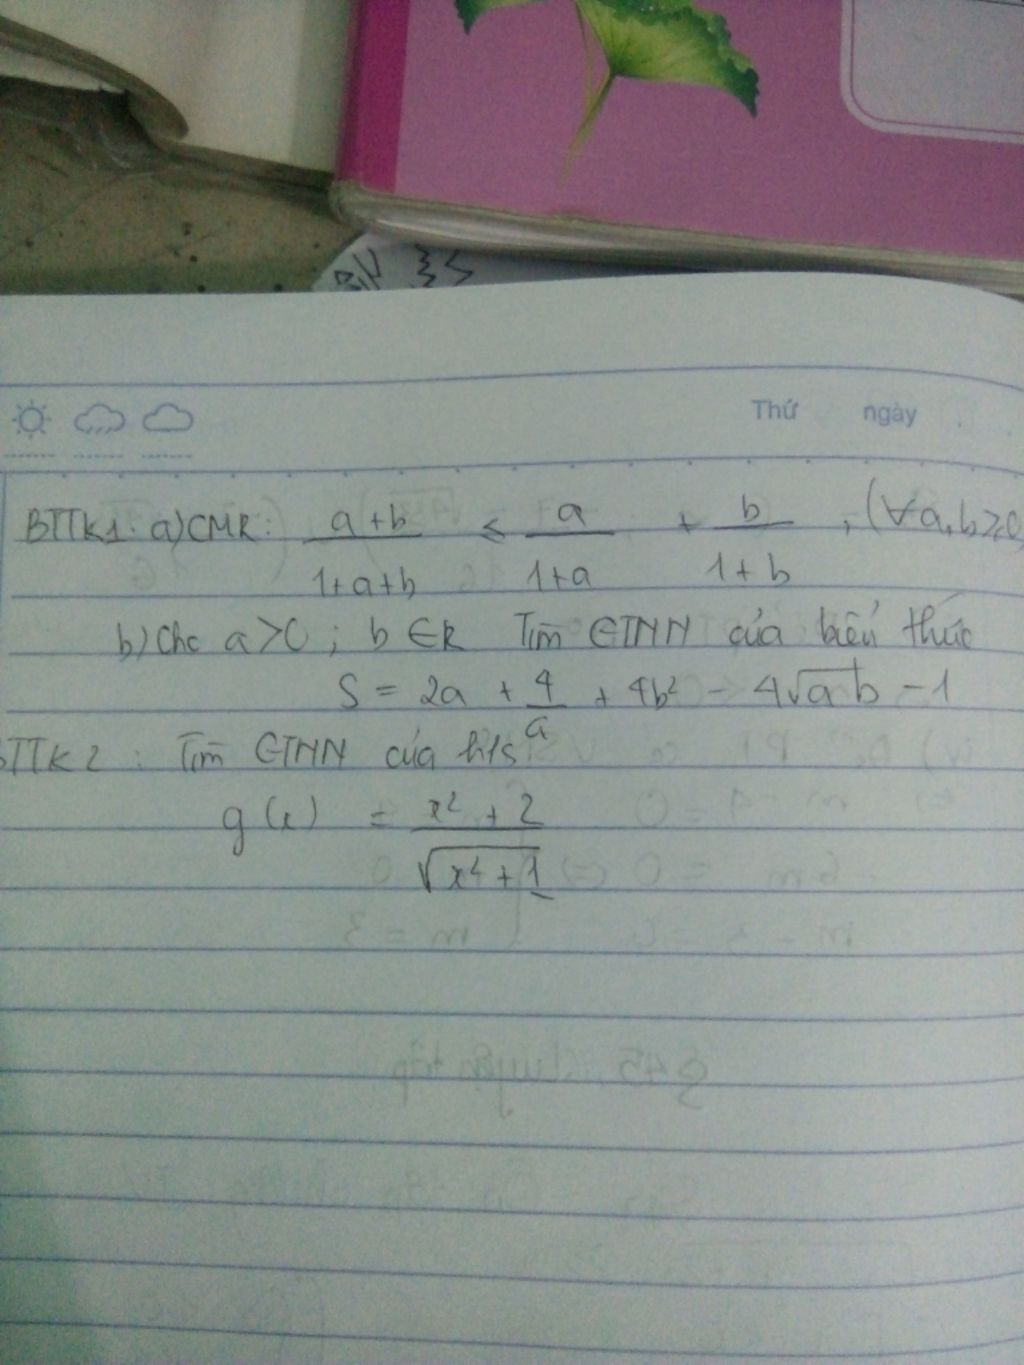 Thứ ngày
BTTK1: a) CMR: \frac{a+b}{1+a+b} ≤ \frac{a}{1+a} + \frac{b}{1+b}, (∀a,b≥0
b) Cho a>0; b∈R Tìm GTNN của biểu thức
S = 2a + \frac{4}{a} + 4b² - 4√ab - 1
BTTK2: Tìm GTNN của h/s
g(x) = \frac{x²+2}{√x⁴+1}